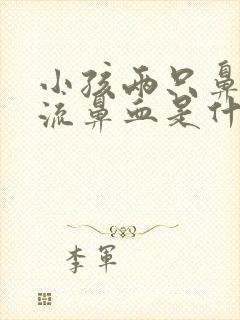 小孩两只鼻
流鼻血是什
李军